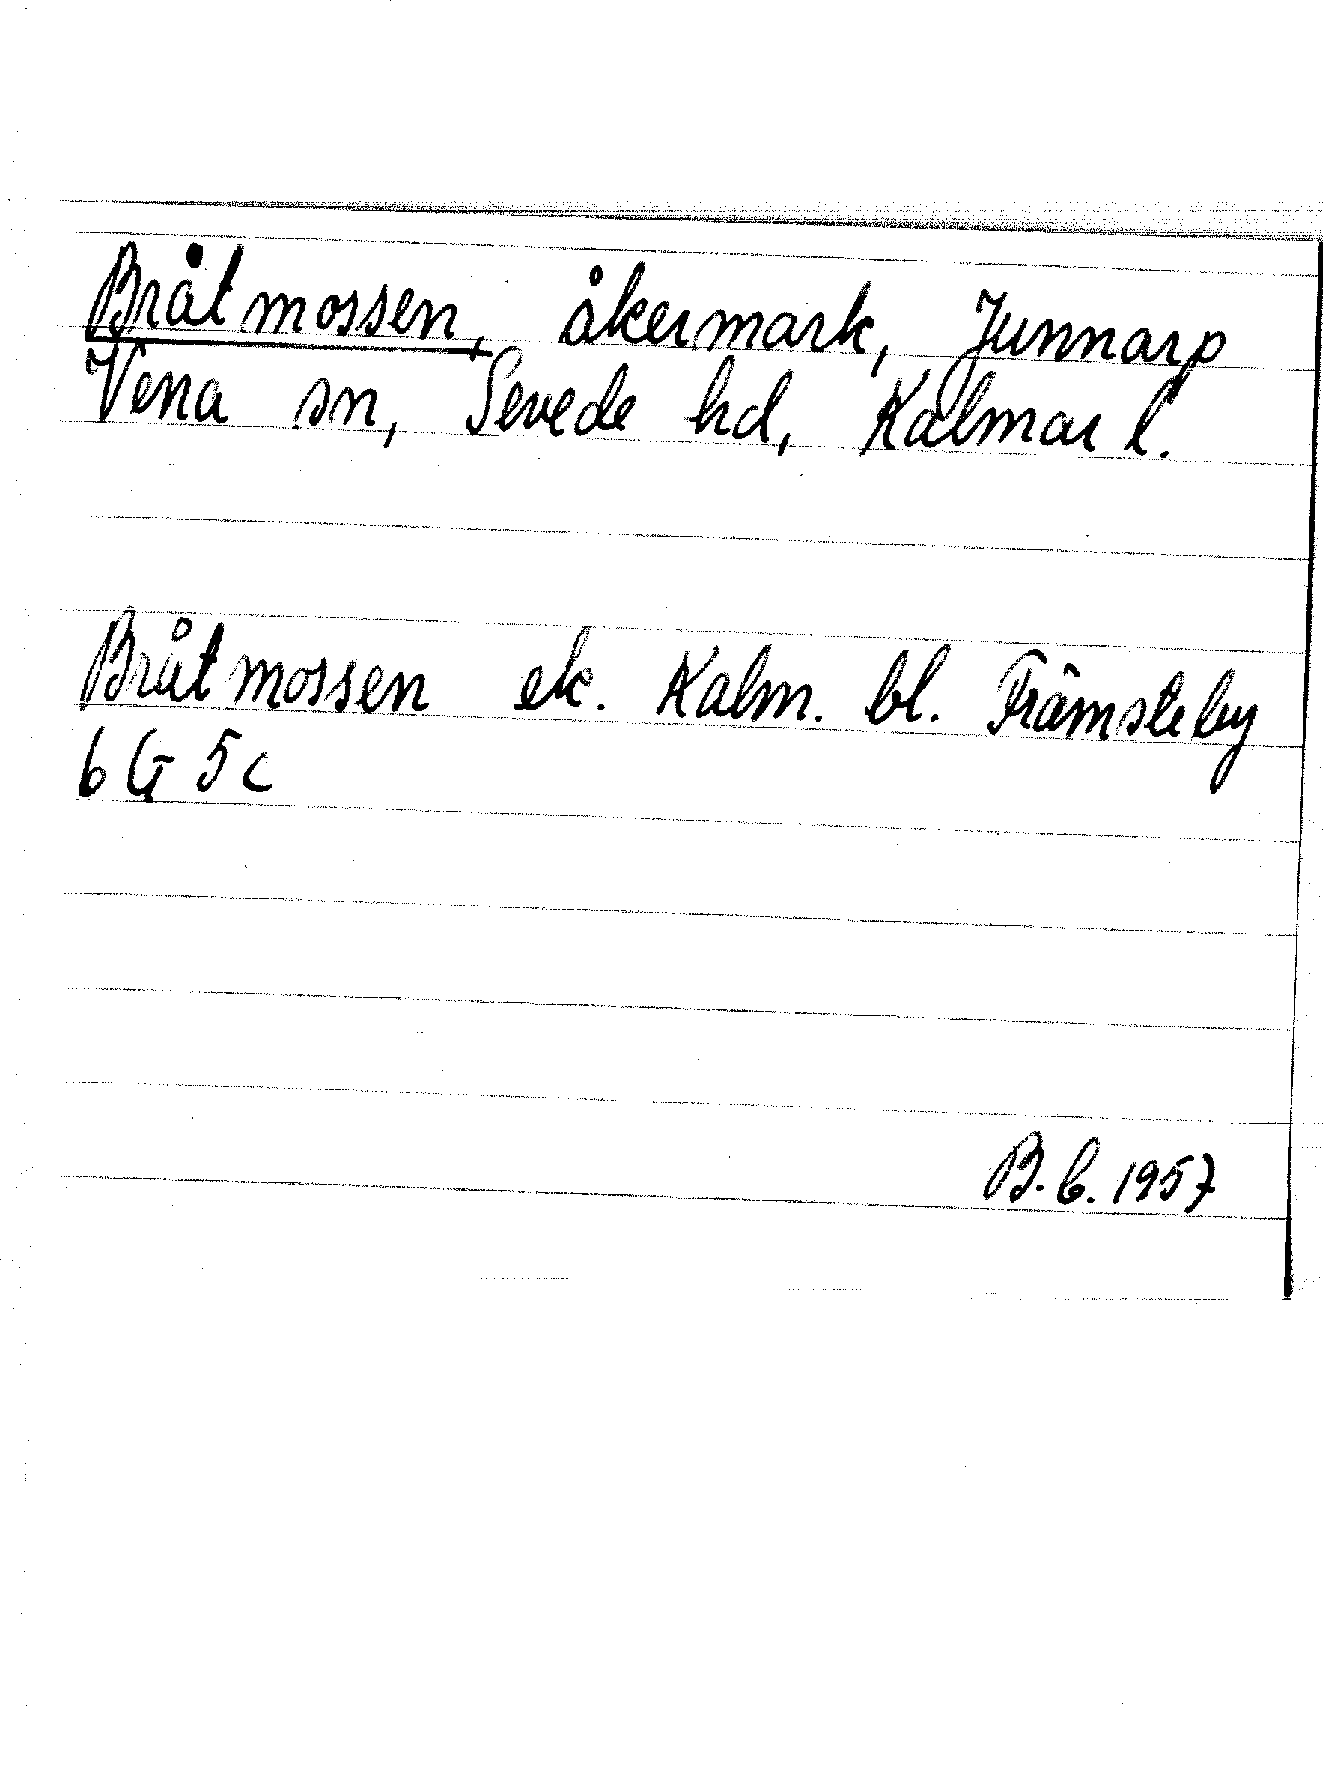 Bråtmossen, åkermark, Junnarp
Vena sn, Sevede hd, Kalmar l.
Bråtmossen ek. Kalm. bl. Främsteby
6 G 5 c
B. E. 1957